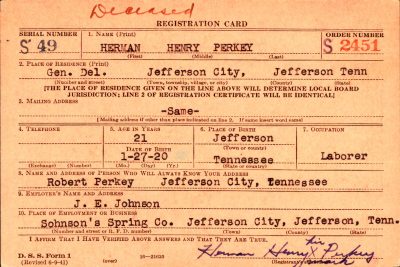 Deceased
REGISTRATION CARD
SERIAL NUMBER 1. NAME (Print) ORDER NUMBER
S 49 HERMAN HENRY PERKEY S 2451
(First) (Middle) (Last)
2. PLACE OF RESIDENCE (Print)
Gen. Del. Jefferson City, Jefferson Tenn
(Number and street) (Town, township, village, or city) (County) (State)
[THE PLACE OF RESIDENCE GIVEN ON THE LINE ABOVE WILL DETERMINE LOCAL BOARD
JURISDICTION; LINE 2 OF REGISTRATION CERTIFICATE WILL BE IDENTICAL]
3. MAILING ADDRESS
-Same-
[Mailing address if other than place indicated on line 2. If same insert word same]
4. TELEPHONE 5. AGE IN YEARS 6. PLACE OF BIRTH 7. OCCUPATION
21 Jefferson
DATE OF BIRTH (Town or county)
1-27-20 Tennessee Laborer
(Exchange) (Number) (Mo.) (Day) (Yr.) (State or country)
8. NAME AND ADDRESS OF PERSON WHO WILL ALWAYS KNOW YOUR ADDRESS
Robert Perkey Jefferson City, Tennessee
9. EMPLOYER'S NAME AND ADDRESS
J. E. Johnson
10. PLACE OF EMPLOYMENT OR BUSINESS
Sohnson's Spring Co. Jefferson City, Jefferson, Tenn.
(Number and street or R. F. D. number) (Town) (County) (State)
I AFFIRM THAT I HAVE VERIFIED ABOVE ANSWERS AND THAT THEY ARE TRUE.
his
Herman Henry X Perkey
mark
D. S. S. Form 1
(Revised 6-9-41)